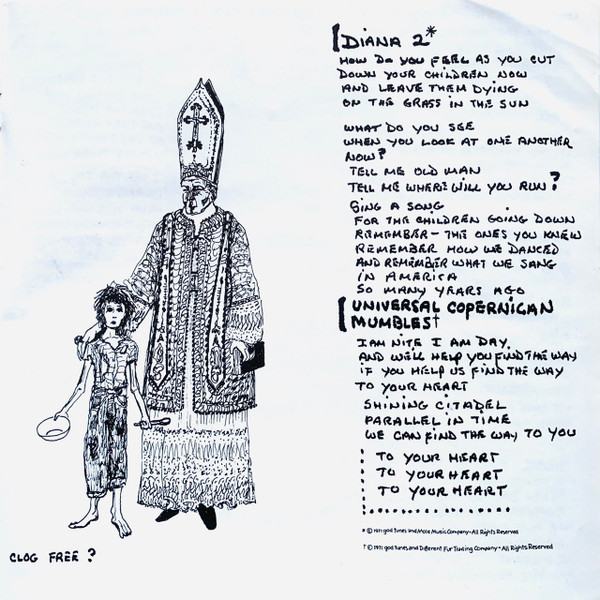 DIANA 2*
HOW DO YOU FEEL AS YOU CUT
DOWN YOUR CHILDREN NOW
AND LEAVE THEM DYING
ON THE GRASS IN THE SUN
WHAT DO YOU SEE
WHEN YOU LOOK AT ONE ANOTHER
NOW?
TELL ME OLD MAN
TELL ME WHERE WILL YOU RUN?
SING A SONG
FOR THE CHILDREN GOING DOWN
REMEMBER - THE ONES YOU KNEW
REMEMBER HOW WE DANCED
AND REMEMBER WHAT WE SANG
IN AMERICA
SO MANY YEARS AGO
UNIVERSAL COPERNICAN
MUMBLES†
I AM NITE I AM DAY,
AND WE'LL HELP YOU FIND THE WAY
IF YOU HELP US FIND THE WAY
TO YOUR HEART
SHINING CITADEL
PARALLEL IN TIME
WE CAN FIND THE WAY TO YOU
TO YOUR HEART
TO YOUR HEART
TO YOUR HEART
* © 1971 god Tunes and Mole Music Company - All Rights Reserved
† © 1971 god Tunes and Different Fur Trading Company - All Rights Reserved
CLOG FREE?